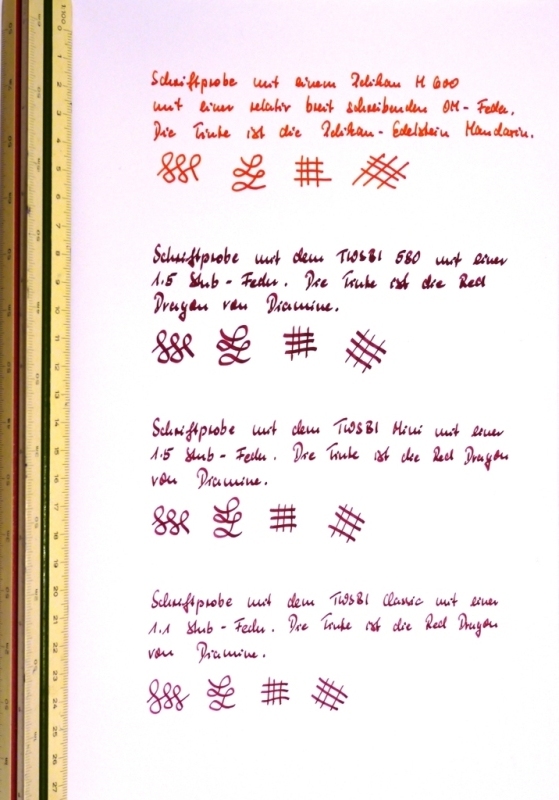 Schriftprobe mit einem Pelikan M 600
mit einer relativ breit schreibenden OM-Feder.
Die Tinte ist die Pelikan-Edelstein Mandarin.
Schriftprobe mit dem TWSBI 580 mit einer
1.5 Stub-Feder. Die Tinte ist die Red
Dragon von Diamine.
Schriftprobe mit dem TWSBI Mini mit einer
1.5 Stub-Feder. Die Tinte ist die Red Dragon
von Diamine.
Schriftprobe mit dem TWSBI Classic mit einer
1.1 Stub-Feder. Die Tinte ist die Red Dragon
von Diamine.
1:100 0
1
2
3
4
5
6
7
8
9
10
11
12
13
14
15
16
17
18
19
20
21
22
23
24
25
26
27